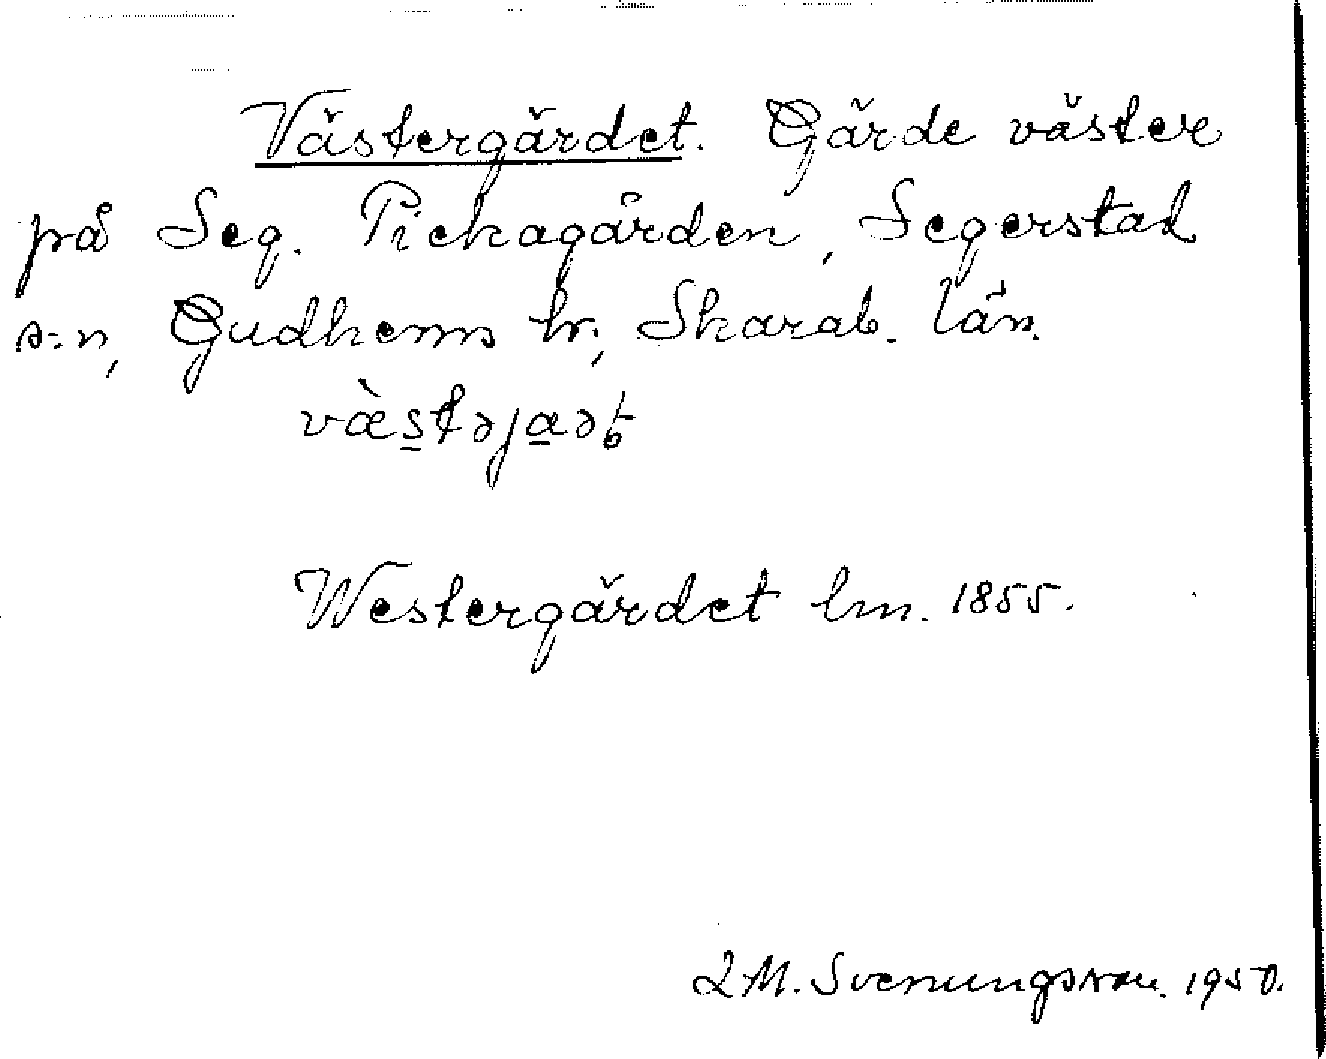 Västergärdet. Gärde väster
på Seg. Pickagården, Segerstad
s:n, Gudhems hr, Skarab. län.
væ̀s̲təja̲ət
Westergärdet lm. 1855.
L M. Svenungsson. 1950.